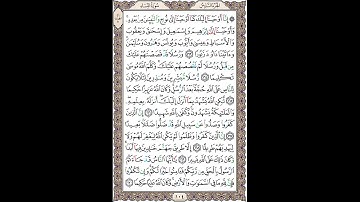 سُورَةُ النِّسَاءِ
۞ إِنَّا أَوْحَيْنَا إِلَيْكَ كَمَا أَوْحَيْنَا إِلَىٰ نُوحٍ وَالنَّبِيِّينَ مِن بَعْدِهِ
وَأَوْحَيْنَا إِلَىٰ إِبْرَاهِيمَ وَإِسْمَاعِيلَ وَإِسْحَاقَ وَيَعْقُوبَ
وَالْأَسْبَاطِ وَعِيسَىٰ وَأَيُّوبَ وَيُونُسَ وَهَارُونَ وَسُلَيْمَانَ
وَآتَيْنَا دَاوُودَ زَبُورًا ١٦٣ وَرُسُلًا قَدْ قَصَصْنَاهُمْ عَلَيْكَ
مِن قَبْلُ وَرُسُلًا لَّمْ نَقْصُصْهُمْ عَلَيْكَ وَكَلَّمَ اللَّهُ مُوسَىٰ
تَكْلِيمًا ١٦٤ رُّسُلًا مُّبَشِّرِينَ وَمُنذِرِينَ لِئَلَّا يَكُونَ لِلنَّاسِ
عَلَى اللَّهِ حُجَّةٌ بَعْدَ الرُّسُلِ وَكَانَ اللَّهُ عَزِيزًا حَكِيمًا
١٦٥ لَّٰكِنِ اللَّهُ يَشْهَدُ بِمَا أَنزَلَ إِلَيْكَ أَنزَلَهُ بِعِلْمِهِ
وَالْمَلَائِكَةُ يَشْهَدُونَ وَكَفَىٰ بِاللَّهِ شَهِيدًا ١٦٦ إِنَّ الَّذِينَ
كَفَرُوا وَصَدُّوا عَن سَبِيلِ اللَّهِ قَدْ ضَلُّوا ضَلَالًا بَعِيدًا
١٦٧ إِنَّ الَّذِينَ كَفَرُوا وَظَلَمُوا لَمْ يَكُنِ اللَّهُ لِيَغْفِرَ لَهُمْ وَلَا
لِيَهْدِيَهُمْ طَرِيقًا ١٦٨ إِلَّا طَرِيقَ جَهَنَّمَ خَالِدِينَ فِيهَا أَبَدًا
وَكَانَ ذَٰلِكَ عَلَى اللَّهِ يَسِيرًا ١٦٩ يَا أَيُّهَا النَّاسُ قَدْ جَاءَكُمُ
الرَّسُولُ بِالْحَقِّ مِن رَّبِّكُمْ فَآمِنُوا خَيْرًا لَّكُمْ وَإِن تَكْفُرُوا
فَإِنَّ لِلَّهِ مَا فِي السَّمَاوَاتِ وَالْأَرْضِ وَكَانَ اللَّهُ عَلِيمًا حَكِيمًا ١٧٠
١٠٤